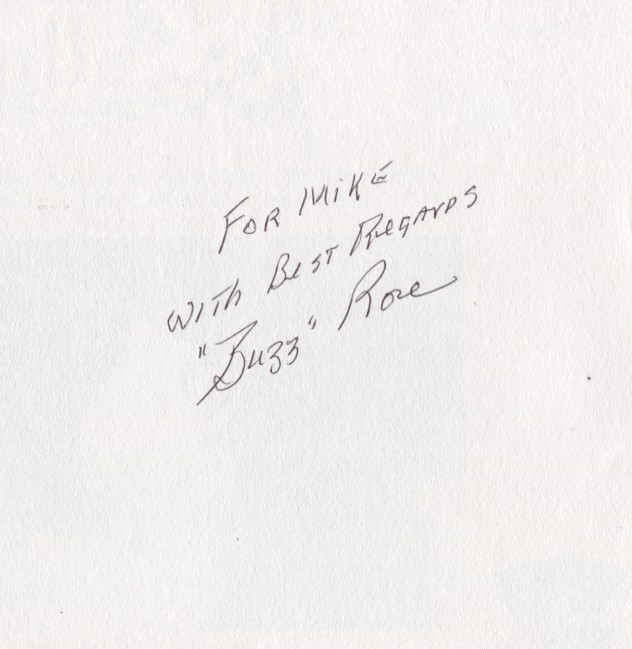 FOR MIKE
WITH BEST REGARDS
"Buzz" Rose